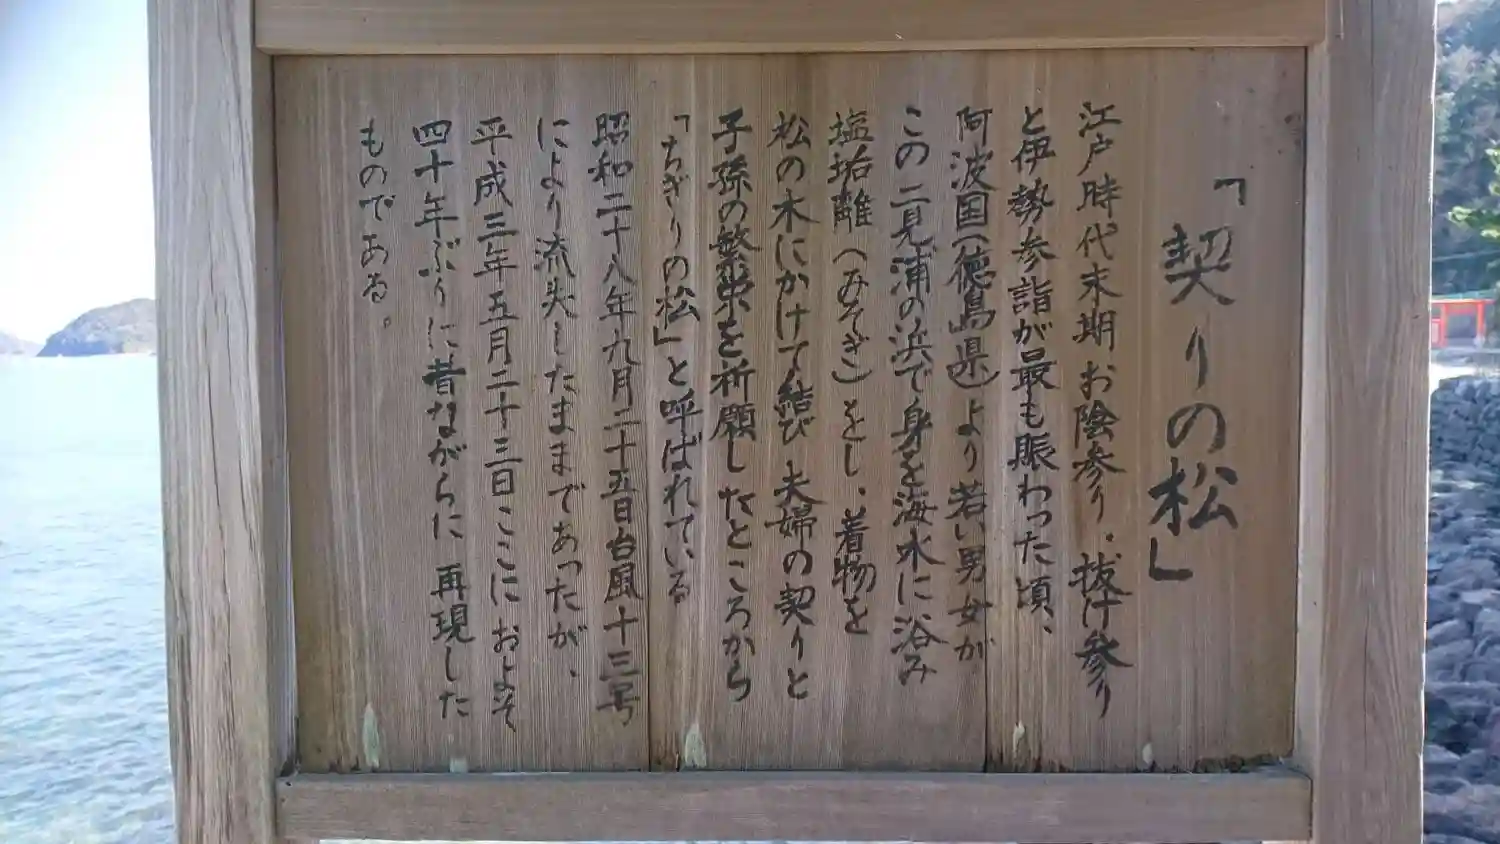 「契りの松」
江戸時代末期お陰参り・抜け参り
と伊勢参詣が最も賑わった頃、
阿波国(徳島県)より若い男女が
この二見浦の浜で身を海水に浴み
塩垢離(みそぎ)をし、着物を
松の木にかけて結び夫婦の契りと
子孫の繁栄を祈願したところから
「ちぎりの松」と呼ばれている
昭和二十八年九月二十五日台風十三号
により流失したままであったが、
平成三年五月二十三日ここにおよそ
四十年ぶりに昔ながらに再現した
ものである。